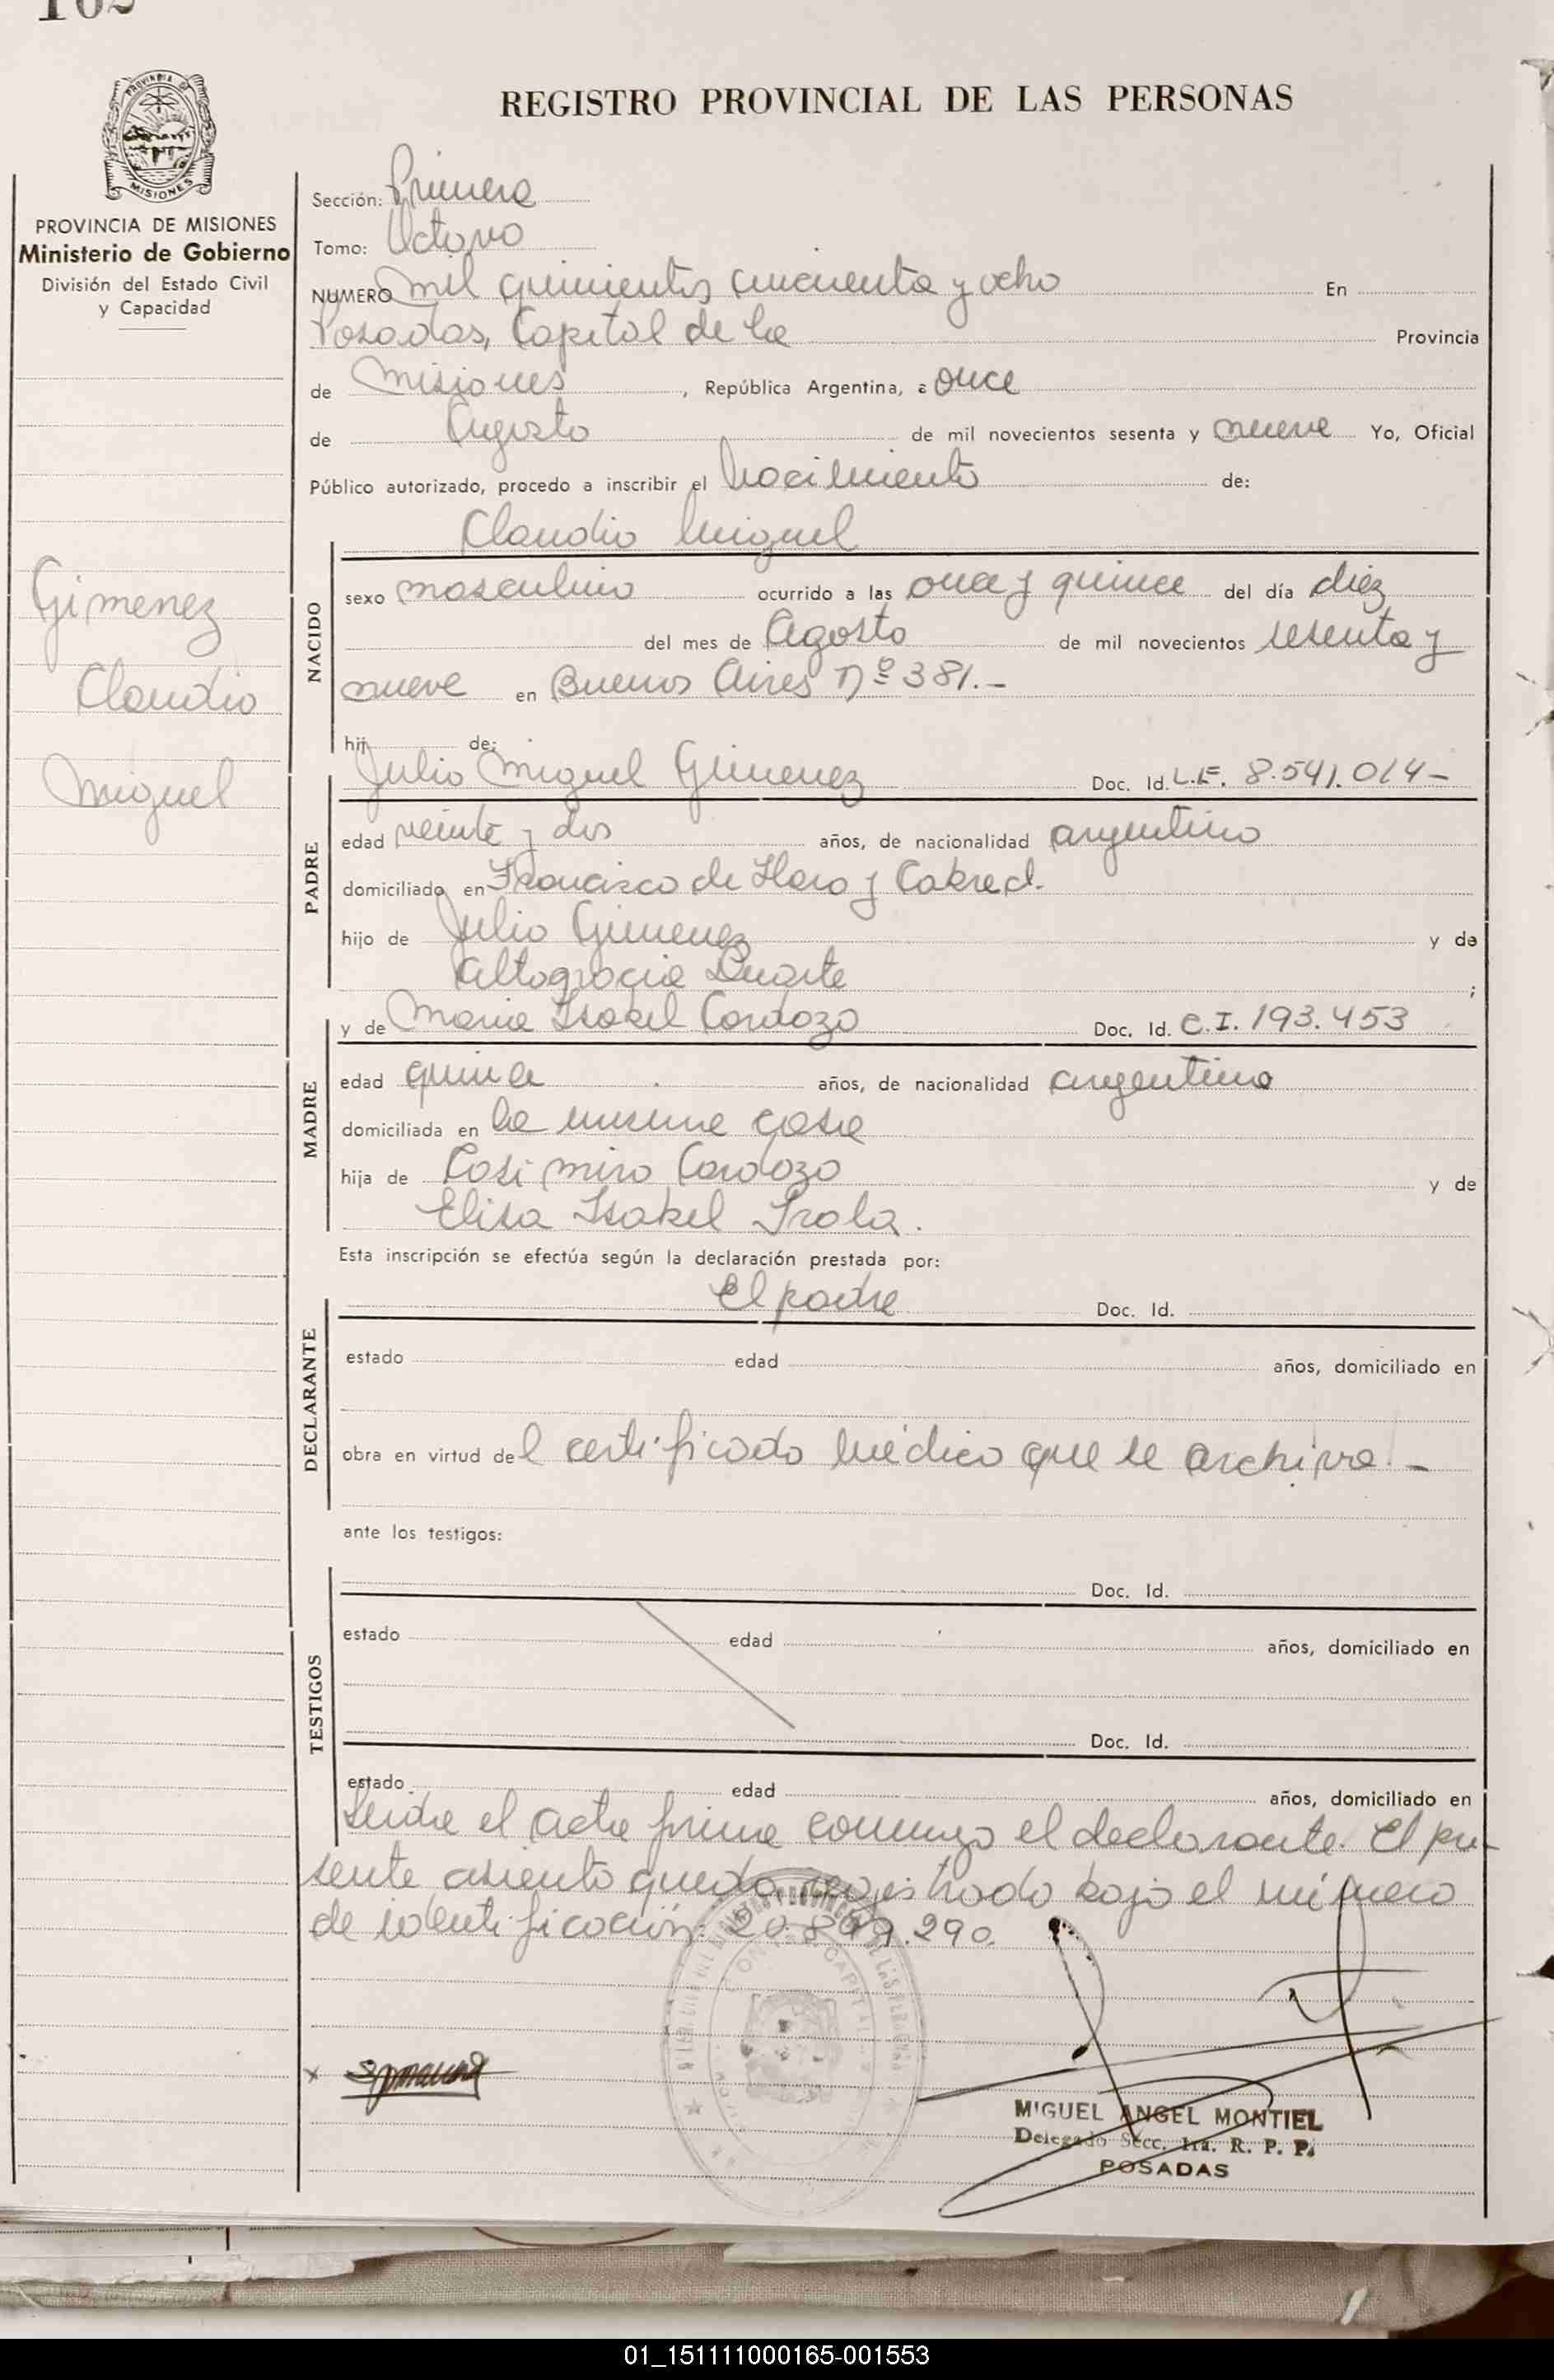 162
REGISTRO PROVINCIAL DE LAS PERSONAS
PROVINCIA DE MISIONES
Ministerio de Gobierno
División del Estado Civil
y Capacidad
Gimenez
Claudio
Miguel
Sección: Primera
Tomo: Octavo
NUMERO mil quinientos cincuenta y ocho En
Posadas, Capital de la Provincia
de Misiones, República Argentina, a once
de Agosto de mil novecientos sesenta y nueve Yo, Oficial
Público autorizado, procedo a inscribir el Nacimiento de:
Claudio Miguel
NACIDO
sexo masculino ocurrido a las once y quince del día diez
del mes de Agosto de mil novecientos sesenta y
nueve en Buenos Aires Nº 381.-
hij de:
Julio Miguel Gimenez Doc. Id. L.E. 8.541.014-
PADRE
edad veinte y dos años, de nacionalidad argentino
domiciliado en Francisco de Haro y Cabred.
hijo de Julio Gimenez y de
Altagracia Duarte ;
y de Maria Isabel Cardozo Doc. Id. C.I. 193.453
MADRE
edad quince años, de nacionalidad argentina
domiciliada en la misma casa
hija de Casimiro Cardozo y de
Elisa Isabel Irala.
Esta inscripción se efectúa según la declaración prestada por:
El padre Doc. Id.
DECLARANTE
estado edad años, domiciliado en
obra en virtud del certificado médico que se archiva.-
ante los testigos:
Doc. Id.
TESTIGOS
estado edad años, domiciliado en
Doc. Id.
estado edad años, domiciliado en
Leída el acta firma conmigo el declarante. El pre-
sente asiento queda registrado bajo el número
de identificación: 20.899.290.
MIGUEL ANGEL MONTIEL
Delegado Secc. 1ra. R. P. P.
POSADAS
01_151111000165-001553